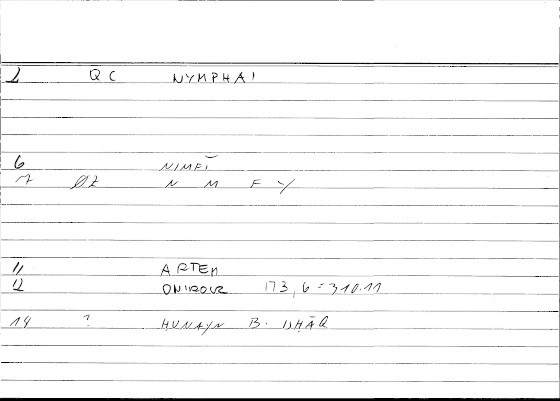 1 QC NYMPHAI
6 NIMFĪ
7 ØZ N M F Y
11 ARTEM
12 ONIROCR 173,6 = 310.11
14 ? HUNAYN B. ISḤĀQ